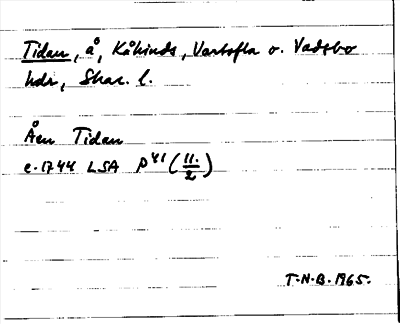 Tidan, å, Kåkinds, Vartofta o. Vadsbo
hdr, Skar. l.
Åen Tidan
c. 1744 LSA P 41 (11./2)
T.N.B. 1965.